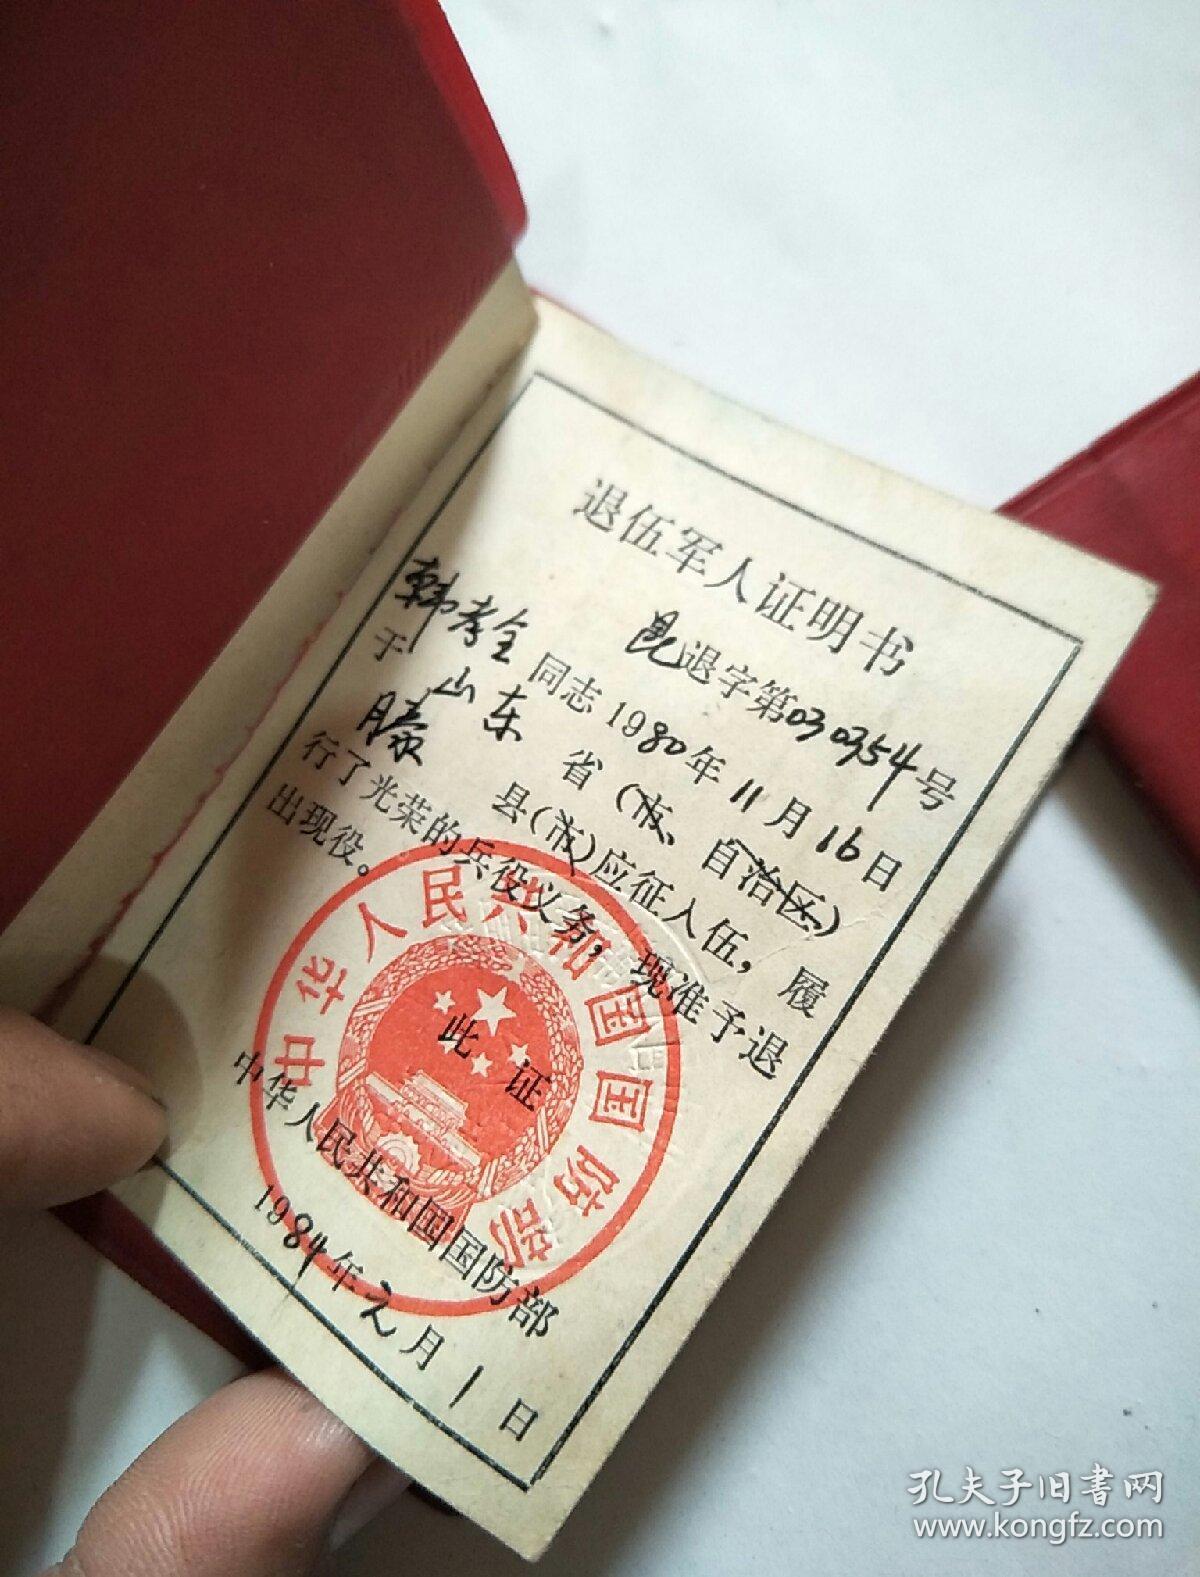 退伍军人证明书
昆退字第030354号
韩孝全同志1980年11月16日
于山东省(市、自治区)
滕县(市)应征入伍，履
行了光荣的兵役义务，现准予退
出现役。
此证
中华人民共和国国防部
1984年元月1日
中华人民共和国国防部
孔夫子旧书网
www.kongfz.com